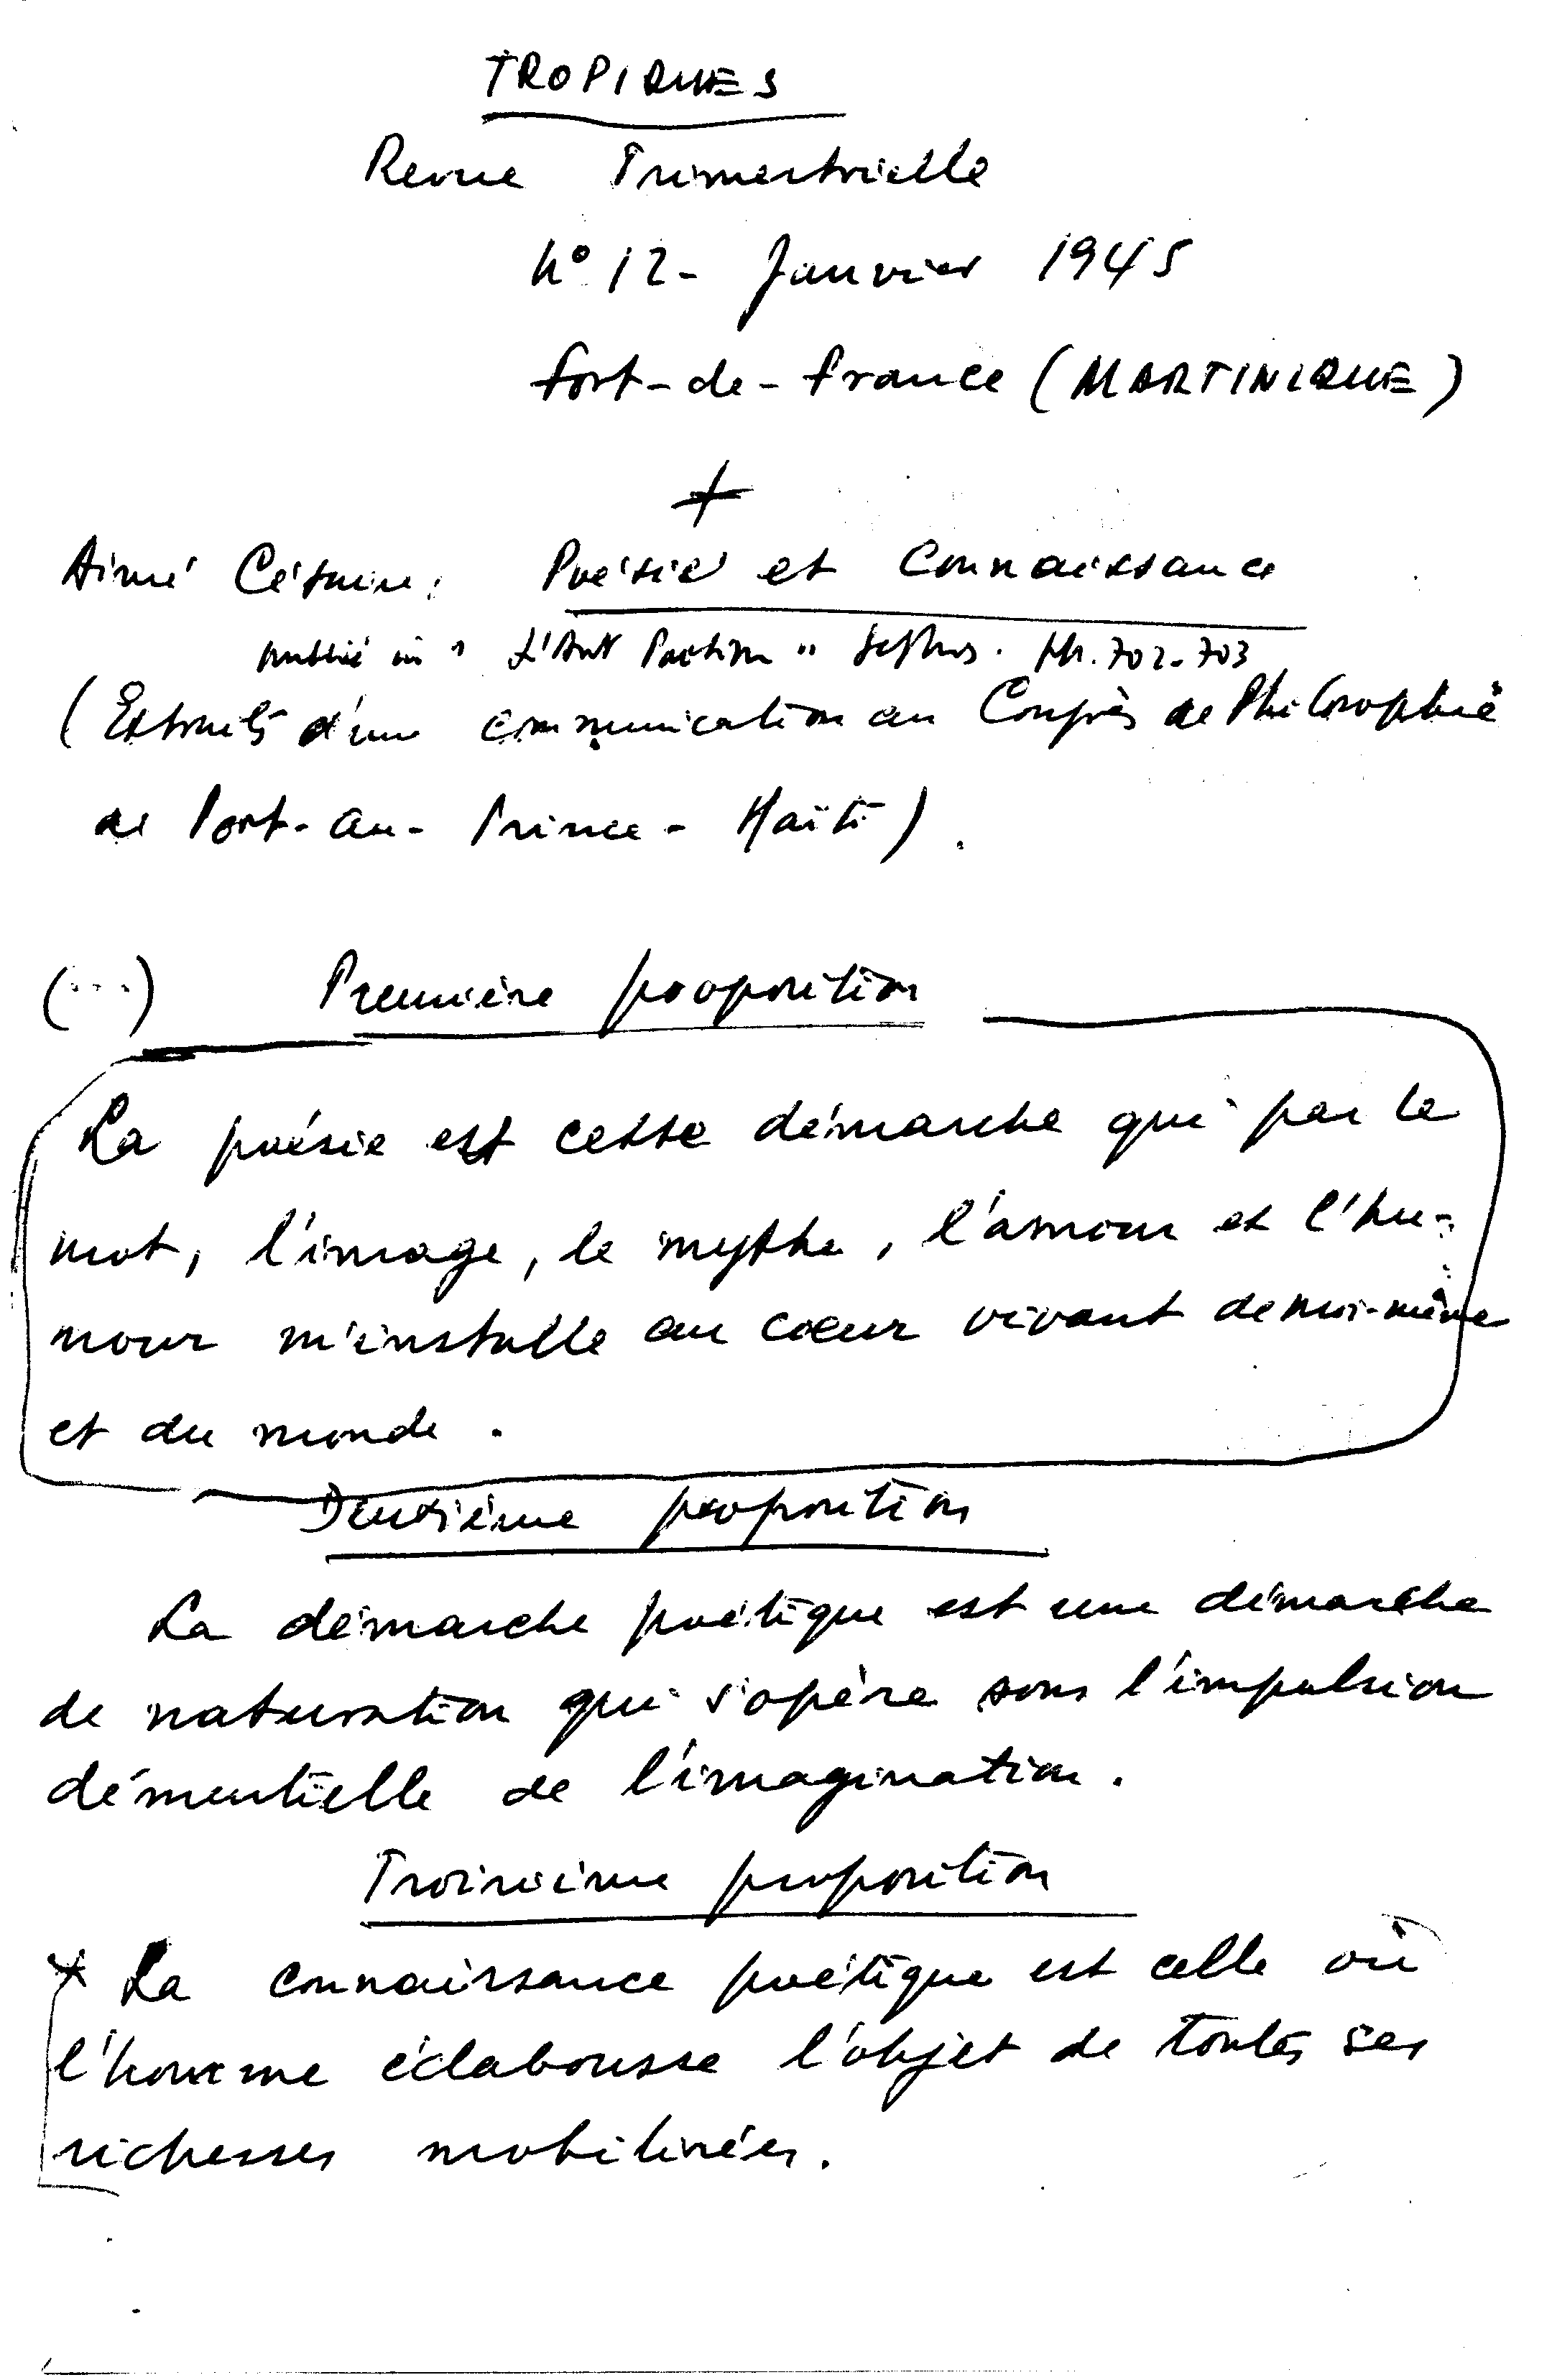 TROPIQUES
Revue Trimestrielle
N° 12 - Janvier 1945
Fort-de-France (MARTINIQUE)
Aimé Césaire: Poésie et Connaissance
publié in "L'Art Poétique" Seghers. pp. 702-703
(Extraits d'une communication au Congrès de Philosophie
de Port-au-Prince - Haïti).
(...) Première proposition
La poésie est cette démarche qui par le
mot, l'image, le mythe, l'amour et l'hu-
mour m'installe au cœur vivant de moi-même
et du monde.
Deuxième proposition
La démarche poétique est une démarche
de naturation qui s'opère sous l'impulsion
démentielle de l'imagination.
Troisième proposition
La connaissance poétique est celle où
l'homme éclabousse l'objet de toutes ses
richesses mobilisées.